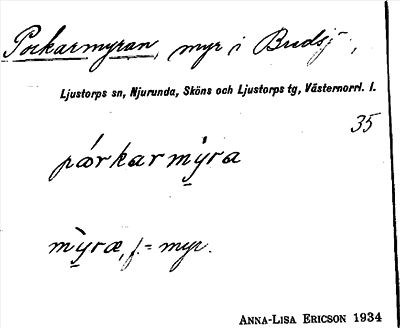 Porkarmyran, myr i Budsj.,
Ljustorps sn, Njurunda, Sköns och Ljustorps tg, Västernorrl. l.
35
pórkarmỳra
mỳræ, f. = myr.
ANNA-LISA ERICSON 1934